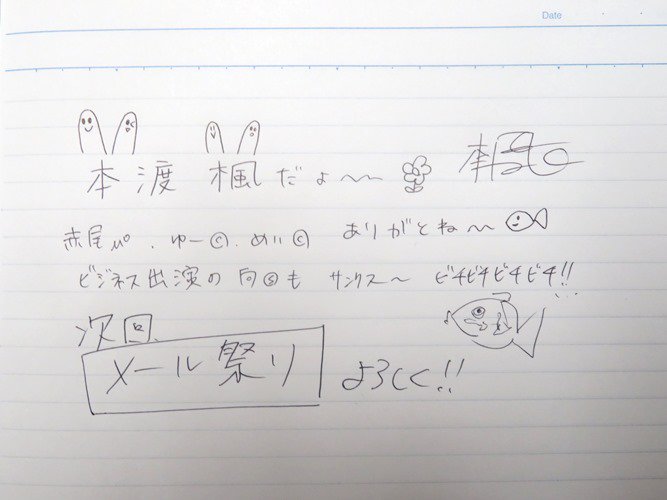 Date
本渡楓だよ〜〜
赤尾μ°、ゆーⓒ、めいⓒ ありがとね〜〜
ビジネス出演の向Ⓢも サンクス〜 ビチビチビチビチ!!
次回
メール祭り よろしく!!